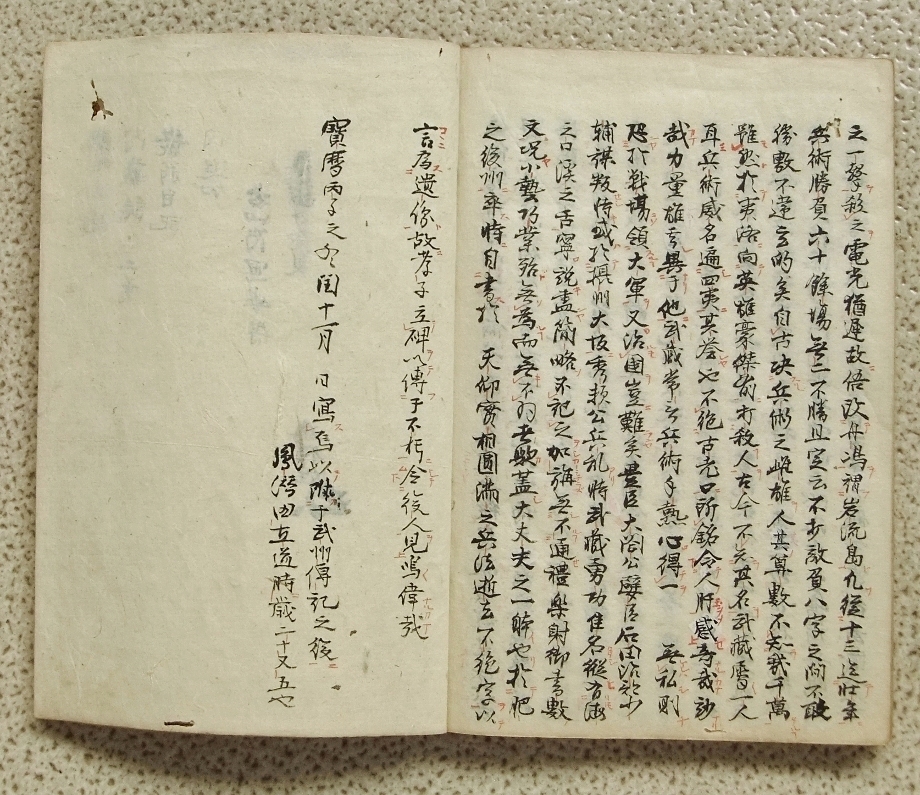 之一擊殺之電光猶遲故俗改舟嶋謂岩流島凢從十三迄壯年
兵術勝負六十餘場無一不勝且定云不打敵眉八字之間不取
勝數不違其的矣自古决兵術之雌雄人其算數不知幾千萬
雖然於夷洛向英雄豪傑前打殺人古今不知其名武藏屬一人
耳兵術威名遍四夷其誉也不絶古老口所銘今人肝感奇哉妙
哉力量雄尤異于他武藏常言兵術手熟心得一 無私則
恐於戰場領大軍又治國豈難矣豊臣大閤公嬖臣石田治部少
輔謀叛時或於摂州大坂秀頼公兵乱時武藏勇功佳名縱有海
之口溪之舌寧説盡簡略不記之加旃無不通禮樂射御書數
文况小藝巧業殆無為而無不為者歟蓋大丈夫之一躰也於肥
之後州卒時自書於 天仰實相圓滿之兵法逝去不絶字以
言為遺像故孝子立碑以傳于不朽令後人見嗚偉哉
寳暦丙子之冬閏十一月 日寫焉以附于武州傳記之後
時歳二十又五也